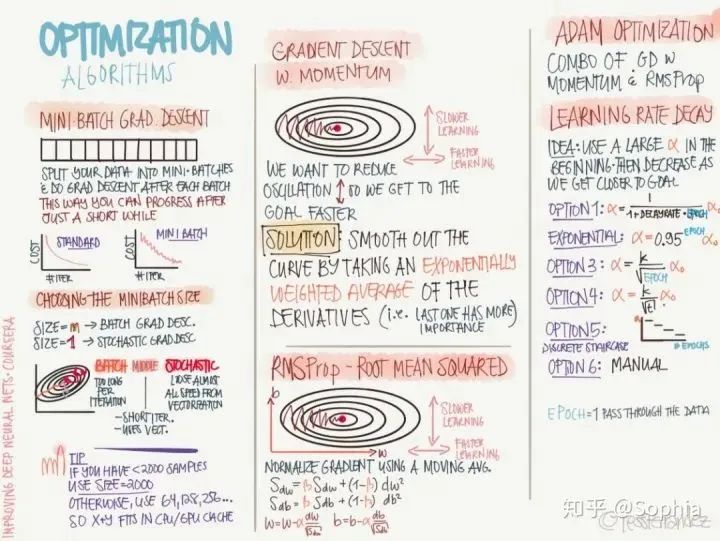 OPTIMIZATION
ALGORITHMS
MINI-BATCH GRAD. DESCENT
SPLIT YOUR DATA INTO MINI-BATCHES
& DO GRAD DESCENT AFTER EACH BATCH
THIS WAY YOU CAN PROGRESS AFTER
JUST A SHORT WHILE
COST
STANDARD
# ITER
COST
MINI BATCH
# ITER
CHOOSING THE MINIBATCH SIZE
SIZE=m → BATCH GRAD DESC.
SIZE=1 → STOCHASTIC GRAD DESC.
BATCH MIDDLE STOCHASTIC
TOO LONG
PER
ITERATION
LOSE ALMOST
ALL SPEED FROM
VECTORIZATION
-SHORT ITER.
-USES VECT.
TIP
IF YOU HAVE <2000 SAMPLES
USE SIZE=2000
OTHERWISE, USE 64,128,256...
SO X+Y FITS IN CPU/GPU CACHE
IMPROVING DEEP NEURAL NETS · COURSERA
GRADIENT DESCENT
W. MOMENTUM
SLOWER
LEARNING
FASTER
LEARNING
WE WANT TO REDUCE
OSCILLATION ↕ SO WE GET TO THE
GOAL FASTER
SOLUTION: SMOOTH OUT THE
CURVE BY TAKING AN EXPONENTIALLY
WEIGHTED AVERAGE OF THE
DERIVATIVES (i.e. LAST ONE HAS MORE)
IMPORTANCE
RMSProp - ROOT MEAN SQUARED
b
w
SLOWER
LEARNING
FASTER
LEARNING
NORMALIZE GRADIENT USING A MOVING AVG.
Sdw = β Sdw + (1-β) dw²
Sdb = β Sdb + (1-β) db²
w = w-α dw/√Sdw b = b-α db/√Sdb
ADAM OPTIMIZATION
COMBO OF GD W
MOMENTUM & RMSProp
LEARNING RATE DECAY
IDEA: USE A LARGE α IN THE
BEGINNING-THEN DECREASE AS
WE GET CLOSER TO GOAL
OPTION 1: α = 1/(1+DECAYRATE·EPOCH) α₀
EXPONENTIAL: α=0.95^EPOCH α₀
OPTION 3: α = k/√EPOCH α₀
OPTION 4: α = k/√t α₀
OPTION 5:
DISCRETE STAIRCASE
# EPOCHS
OPTION 6: MANUAL
EPOCH = 1 PASS THROUGH THE DATA
知乎 @Sophia